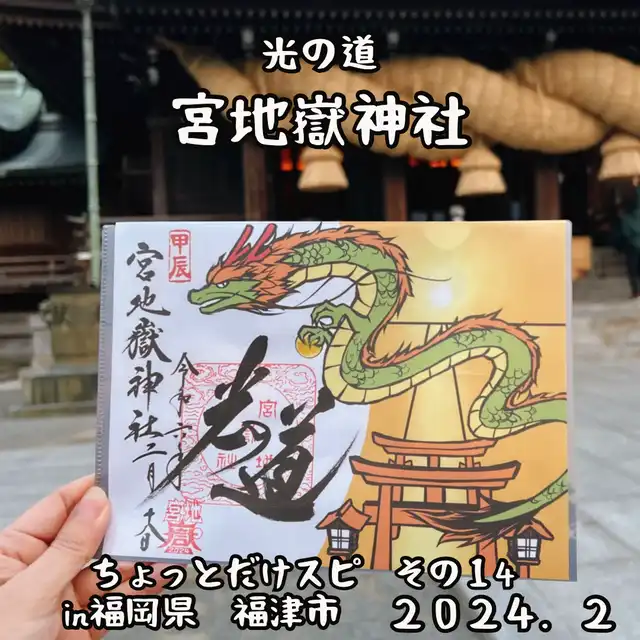 光の道
宮地嶽神社
甲辰
宮地嶽神社二月
令和六年
光の道
宮地
嶽
2024
ちょっとだけスピ その14
in福岡県 福津市 2024.2